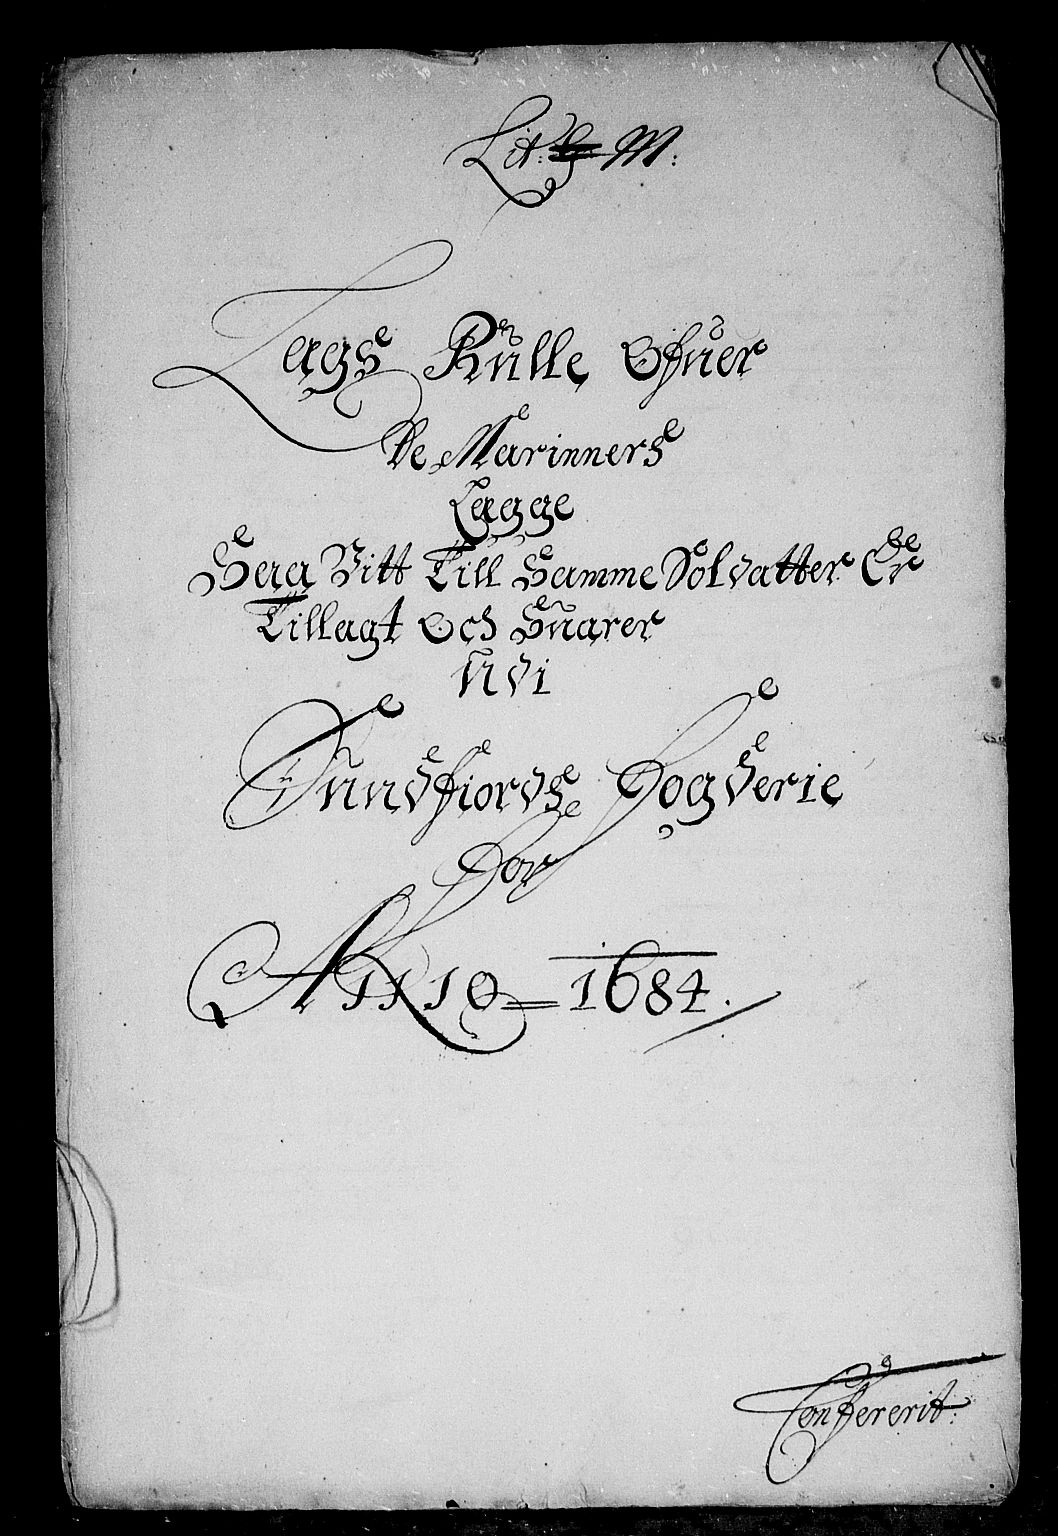 Lit: M:
Lags Rulle Ofuer
De Marinners
Lægge
Saa Vitt Till Samme Soldatter Er
Tillagt Och Suarer
Udi
Sundfiords Fogderie
For
Anno 1684.
Confererit: